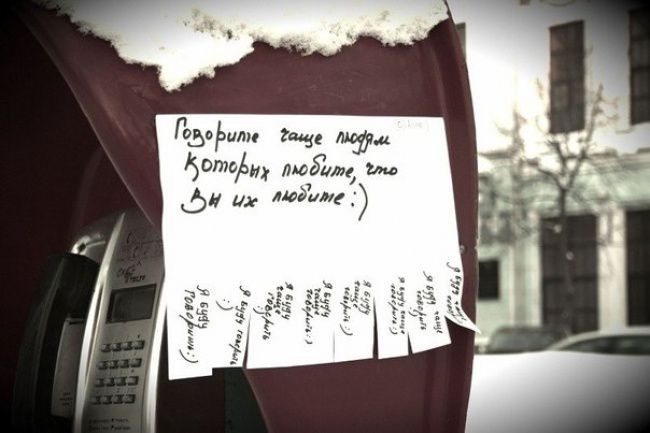 Говорите чаще людям
которых любите, что
Вы их любите:)
Я буду
говорить:)
Я буду говорить
:)
Я буду
чаще
говорить
Я буду
чаще
говорить:)
Я буду
чаще
говорить:)
Я буду чаще
говорить:)
Я буду чаще
говорить
Я буду